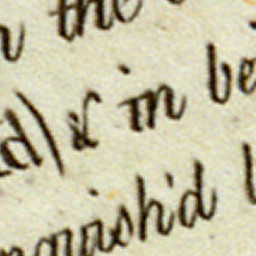 the
d) & in be
nguish'd